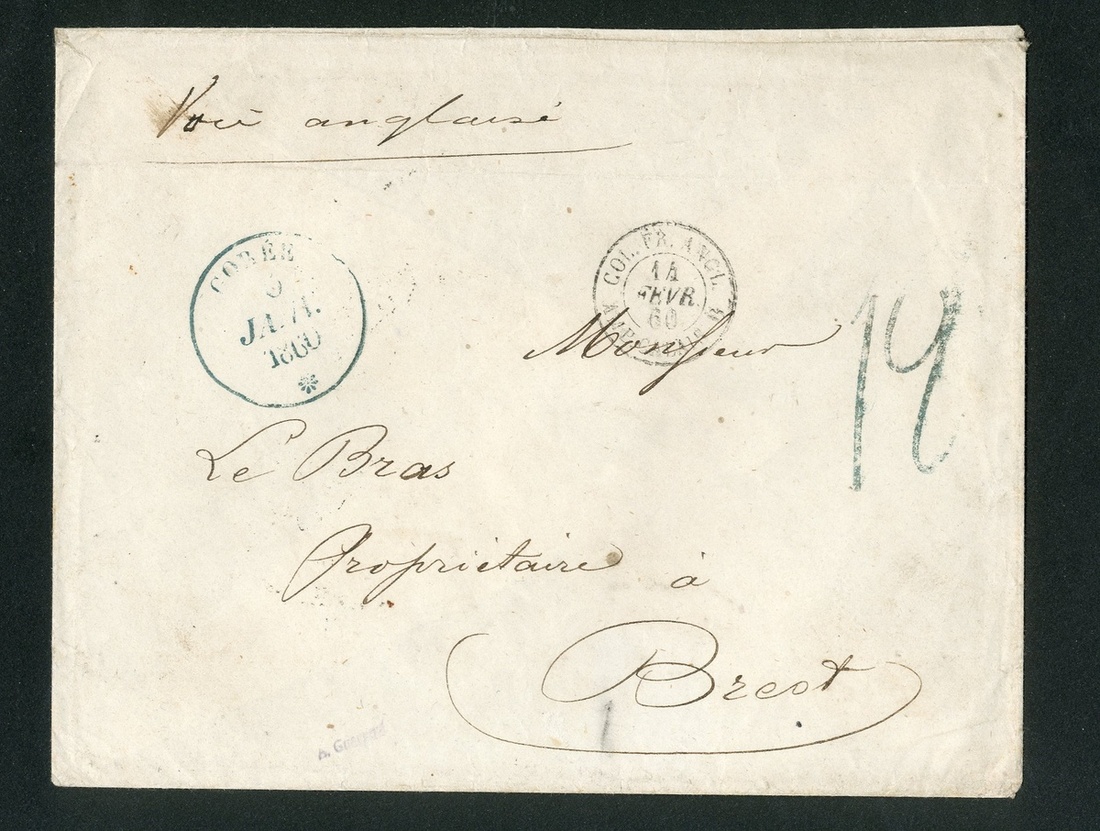 Voie anglaise
GORÉE
9
JANV.
1860
COL. FR. ANGL.
14
FEVR.
60
AMB. CALAIS
14
Monsieur
Le Bras
Propriétaire à
Brest